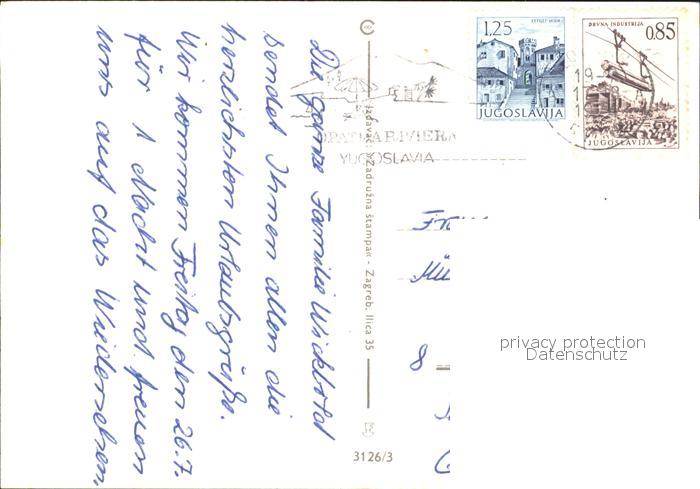 Die ganze Familie Wickbold
sendet Ihnen allen die
herzlichsten Urlaubsgrüße.
Wir kommen Freitag den 26.7.
für 1 Nacht und freuen
uns auf das Wiedersehen.
1,25
JUGOSLAVIJA
DRVNA INDUSTRIJA
0,85
JUGOSLAVIJA
YUGOSLAVIA
Izdavač: Zadružna štampa - Zagreb, Ilica 35
3126/3
8
privacy protection
Datenschutz